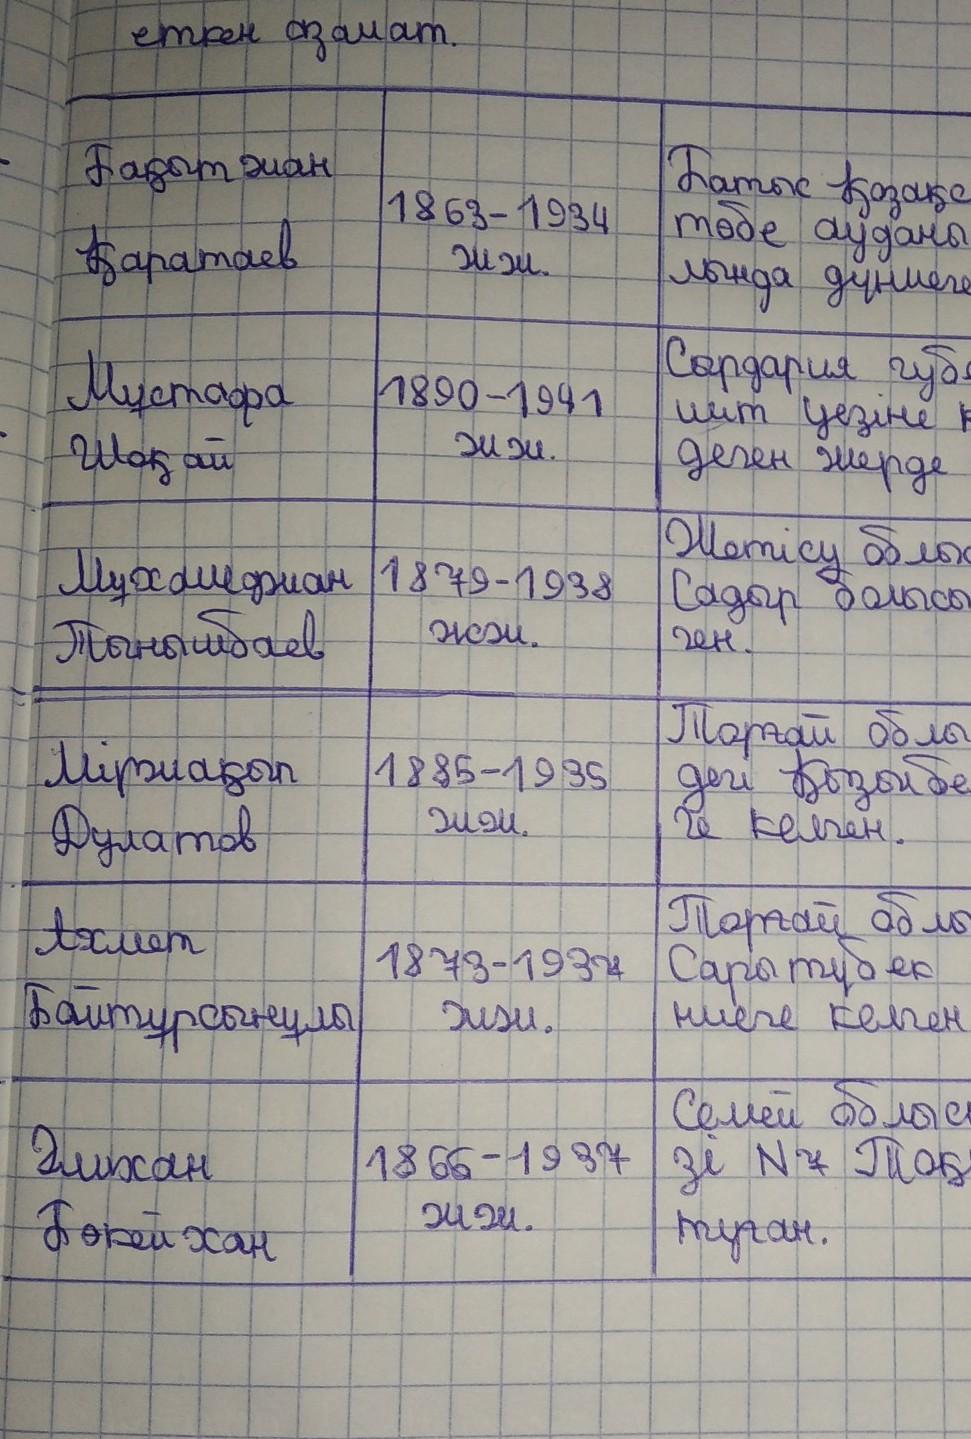 еткен азамат.
Бақытжан
Қаратаев
1863-1934
жж.
Батыс Қазақс
төбе ауданы
лында дүниеге
Мұстафа
Шоқай
1890-1941
жж.
Сырдария губе
шит уезіне қ
деген жерде
Мұхамеджан
Тынышбаев
1879-1938
жж.
Жетісу облыс
Садыр болысы
ген.
Міржақып
Дулатов
1885-1935
жж.
Торғай облы
дегі Қызылбе
ге келген.
Ахмет
Байтұрсынұлы
1873-1937
жж.
Торғай облы
Сарытүбек
ниеге келген
Әлихан
Бөкейхан
1866-1937
жж.
Семей облыс
зі N7 Тоқ
туған.